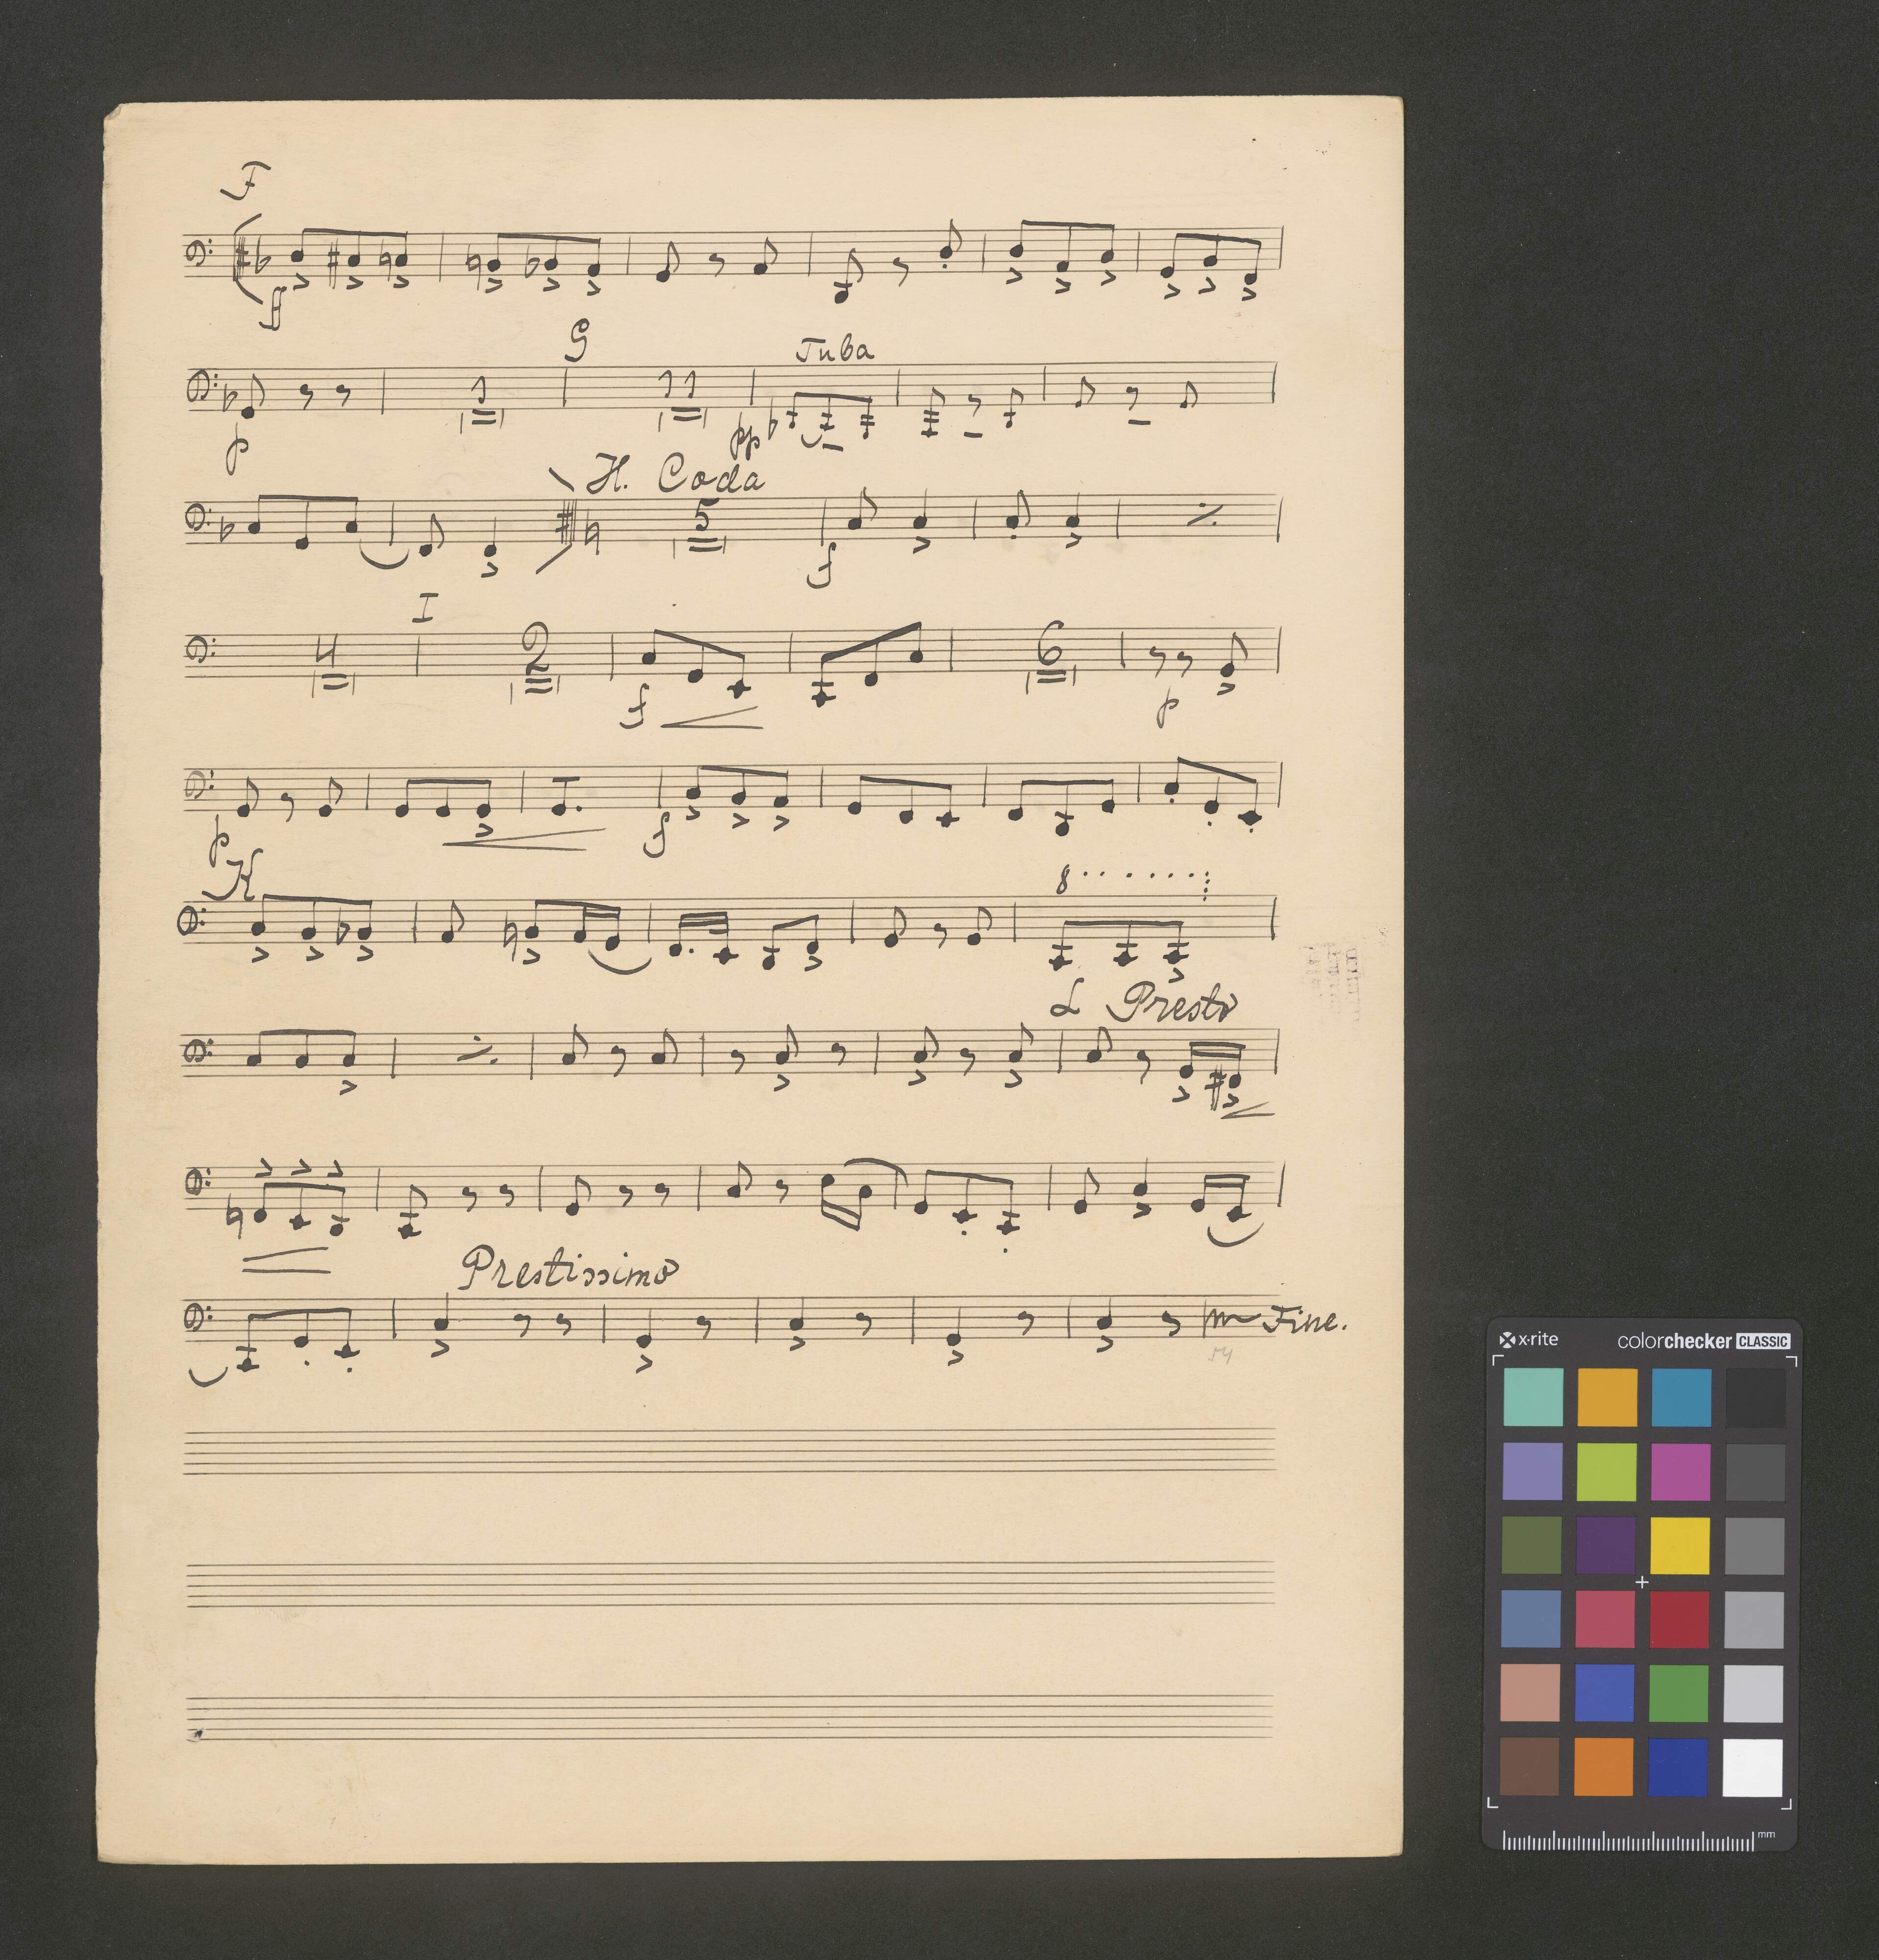 F
ff
G
Tuba
1
11
p
pp
H. Coda
5
f
I
4
2
6
f
p
p
f
K
8
L Presto
Prestissimo
Fine.
54
x-rite colorchecker CLASSIC
mm